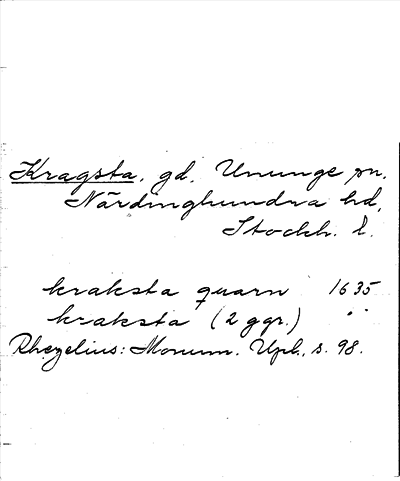 Kragsta, gd, Ununge sn,
Närdinghundra hd,
Stockh. l.
kraksta quarn 1635
kraksta (2 ggr.) "
Rhezelius: Monum. Upl., s. 98.